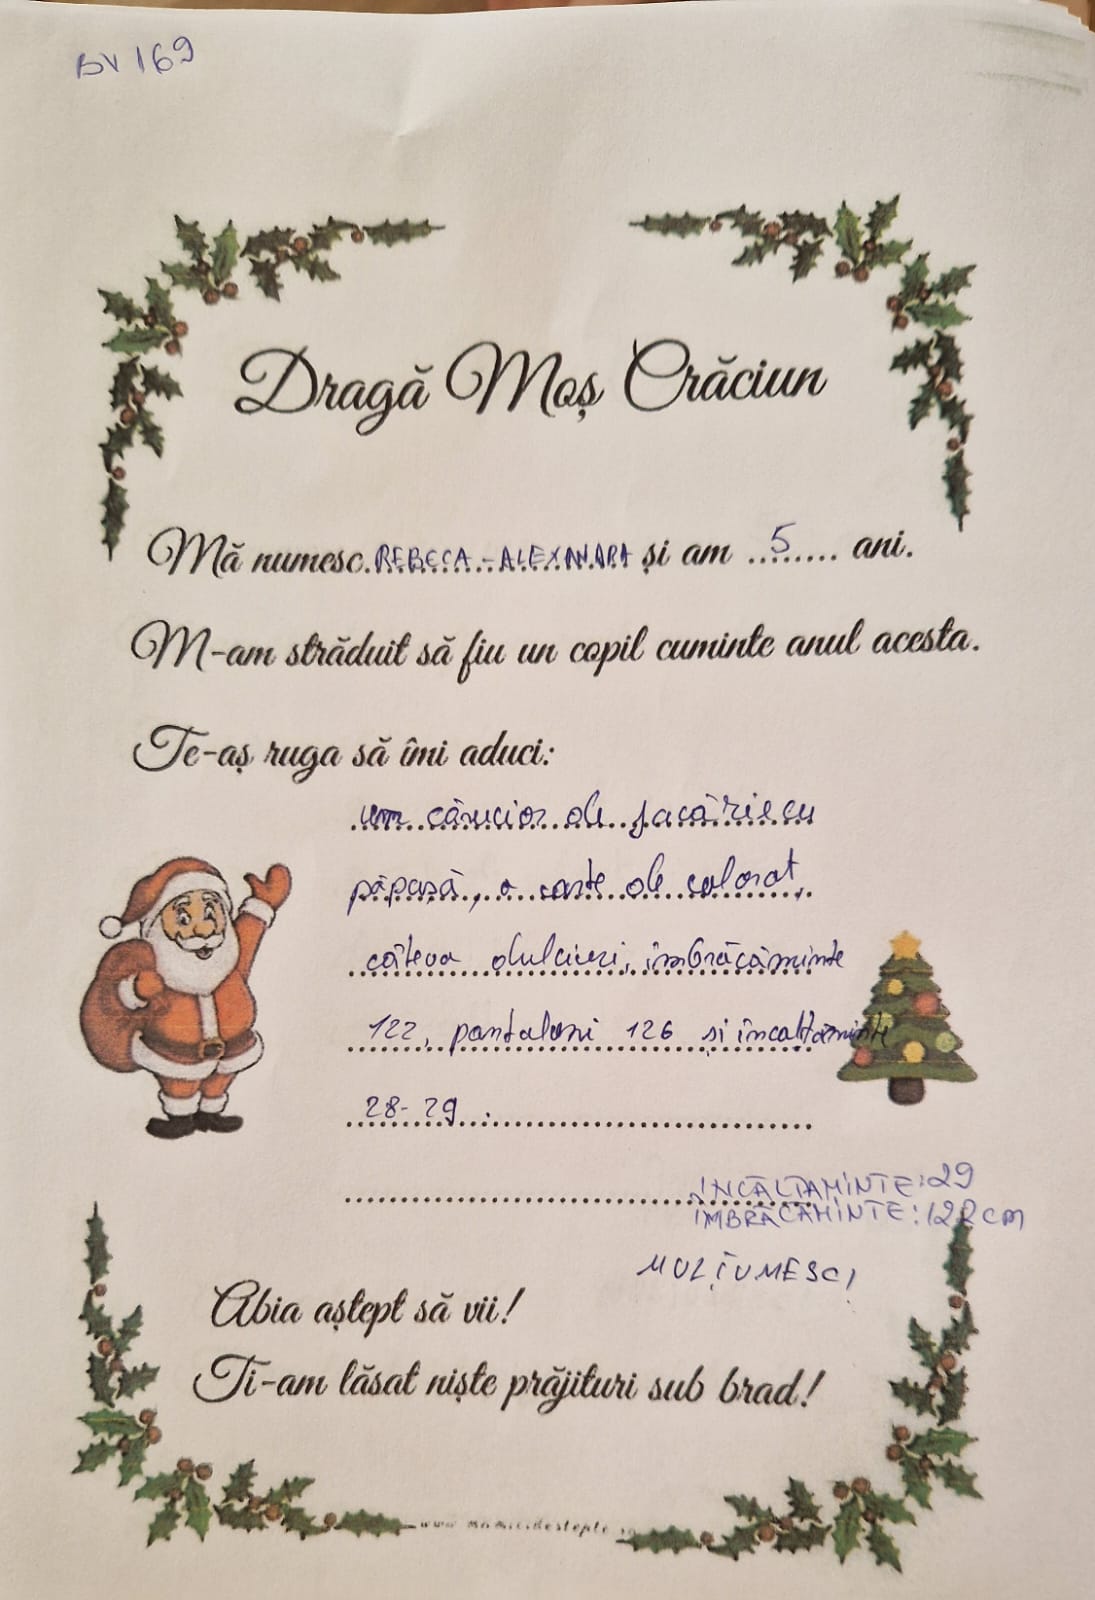 BV 169
Dragă Moș Crăciun
Mă numesc REBECA-ALEXANDRA și am 5 ani.
M-am străduit să fiu un copil cuminte anul acesta.
Te-aș ruga să îmi aduci:
un cărucior de jucărie cu
păpușă, o carte de colorat,
câteva dulciuri, îmbrăcăminte
122, pantaloni 126 și încalțăminte
28-29.
ÎNCĂLȚĂMINTE: 29
ÎMBRĂCĂMINTE: 122 cm
MULȚUMESC!
Abia aștept să vii!
Ti-am lăsat niște prăjituri sub brad!
www.mamicidestepte.ro